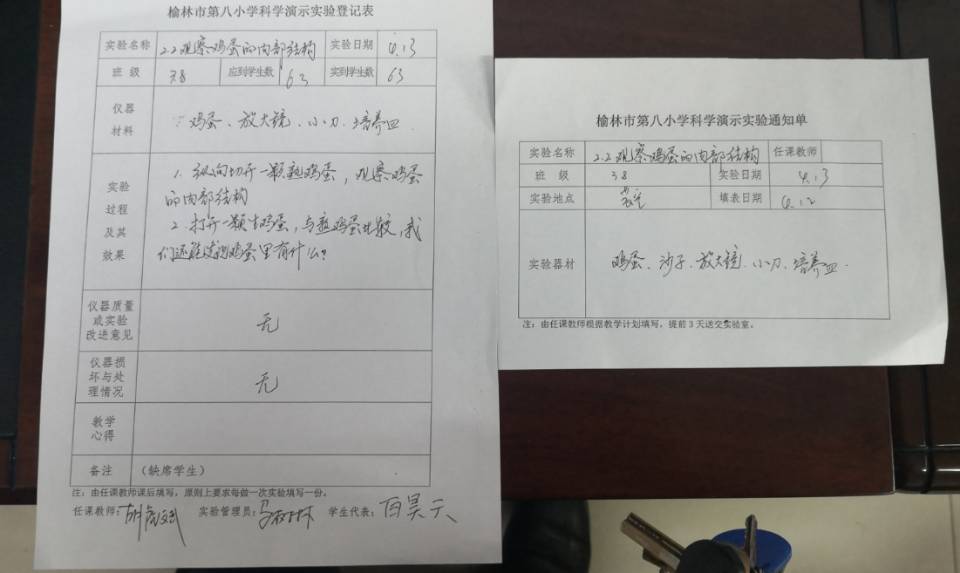 榆林市第八小学科学演示实验登记表
实验名称 2.2观察鸡蛋的内部结构 实验日期 4.13
班 级 38 应到学生数 63 实到学生数 63
仪器
材料
鸡蛋、放大镜、小刀、培养皿
实验
过程
及其
效果
1. 纵向切开一颗熟鸡蛋,观察鸡蛋
的内部结构
2. 打开一颗生鸡蛋,与熟鸡蛋比较,我
们还能找到鸡蛋里有什么?
仪器质量
或实验
改进意见
无
仪器损
坏与处
理情况
无
教学
心得
备注 (缺席学生)
注:由任课教师课后填写,原则上要求每做一次实验填写一份。
任课教师: 实验管理员: 学生代表:白昊天
榆林市第八小学科学演示实验通知单
实验名称 2.2观察鸡蛋的内部结构 任课教师
班 级 38 实验日期 4.13
实验地点 填表日期 4.12
实验器材 鸡蛋、沙子、放大镜、小刀、培养皿
注:由任课教师根据教学计划填写,提前3天送交实验室。